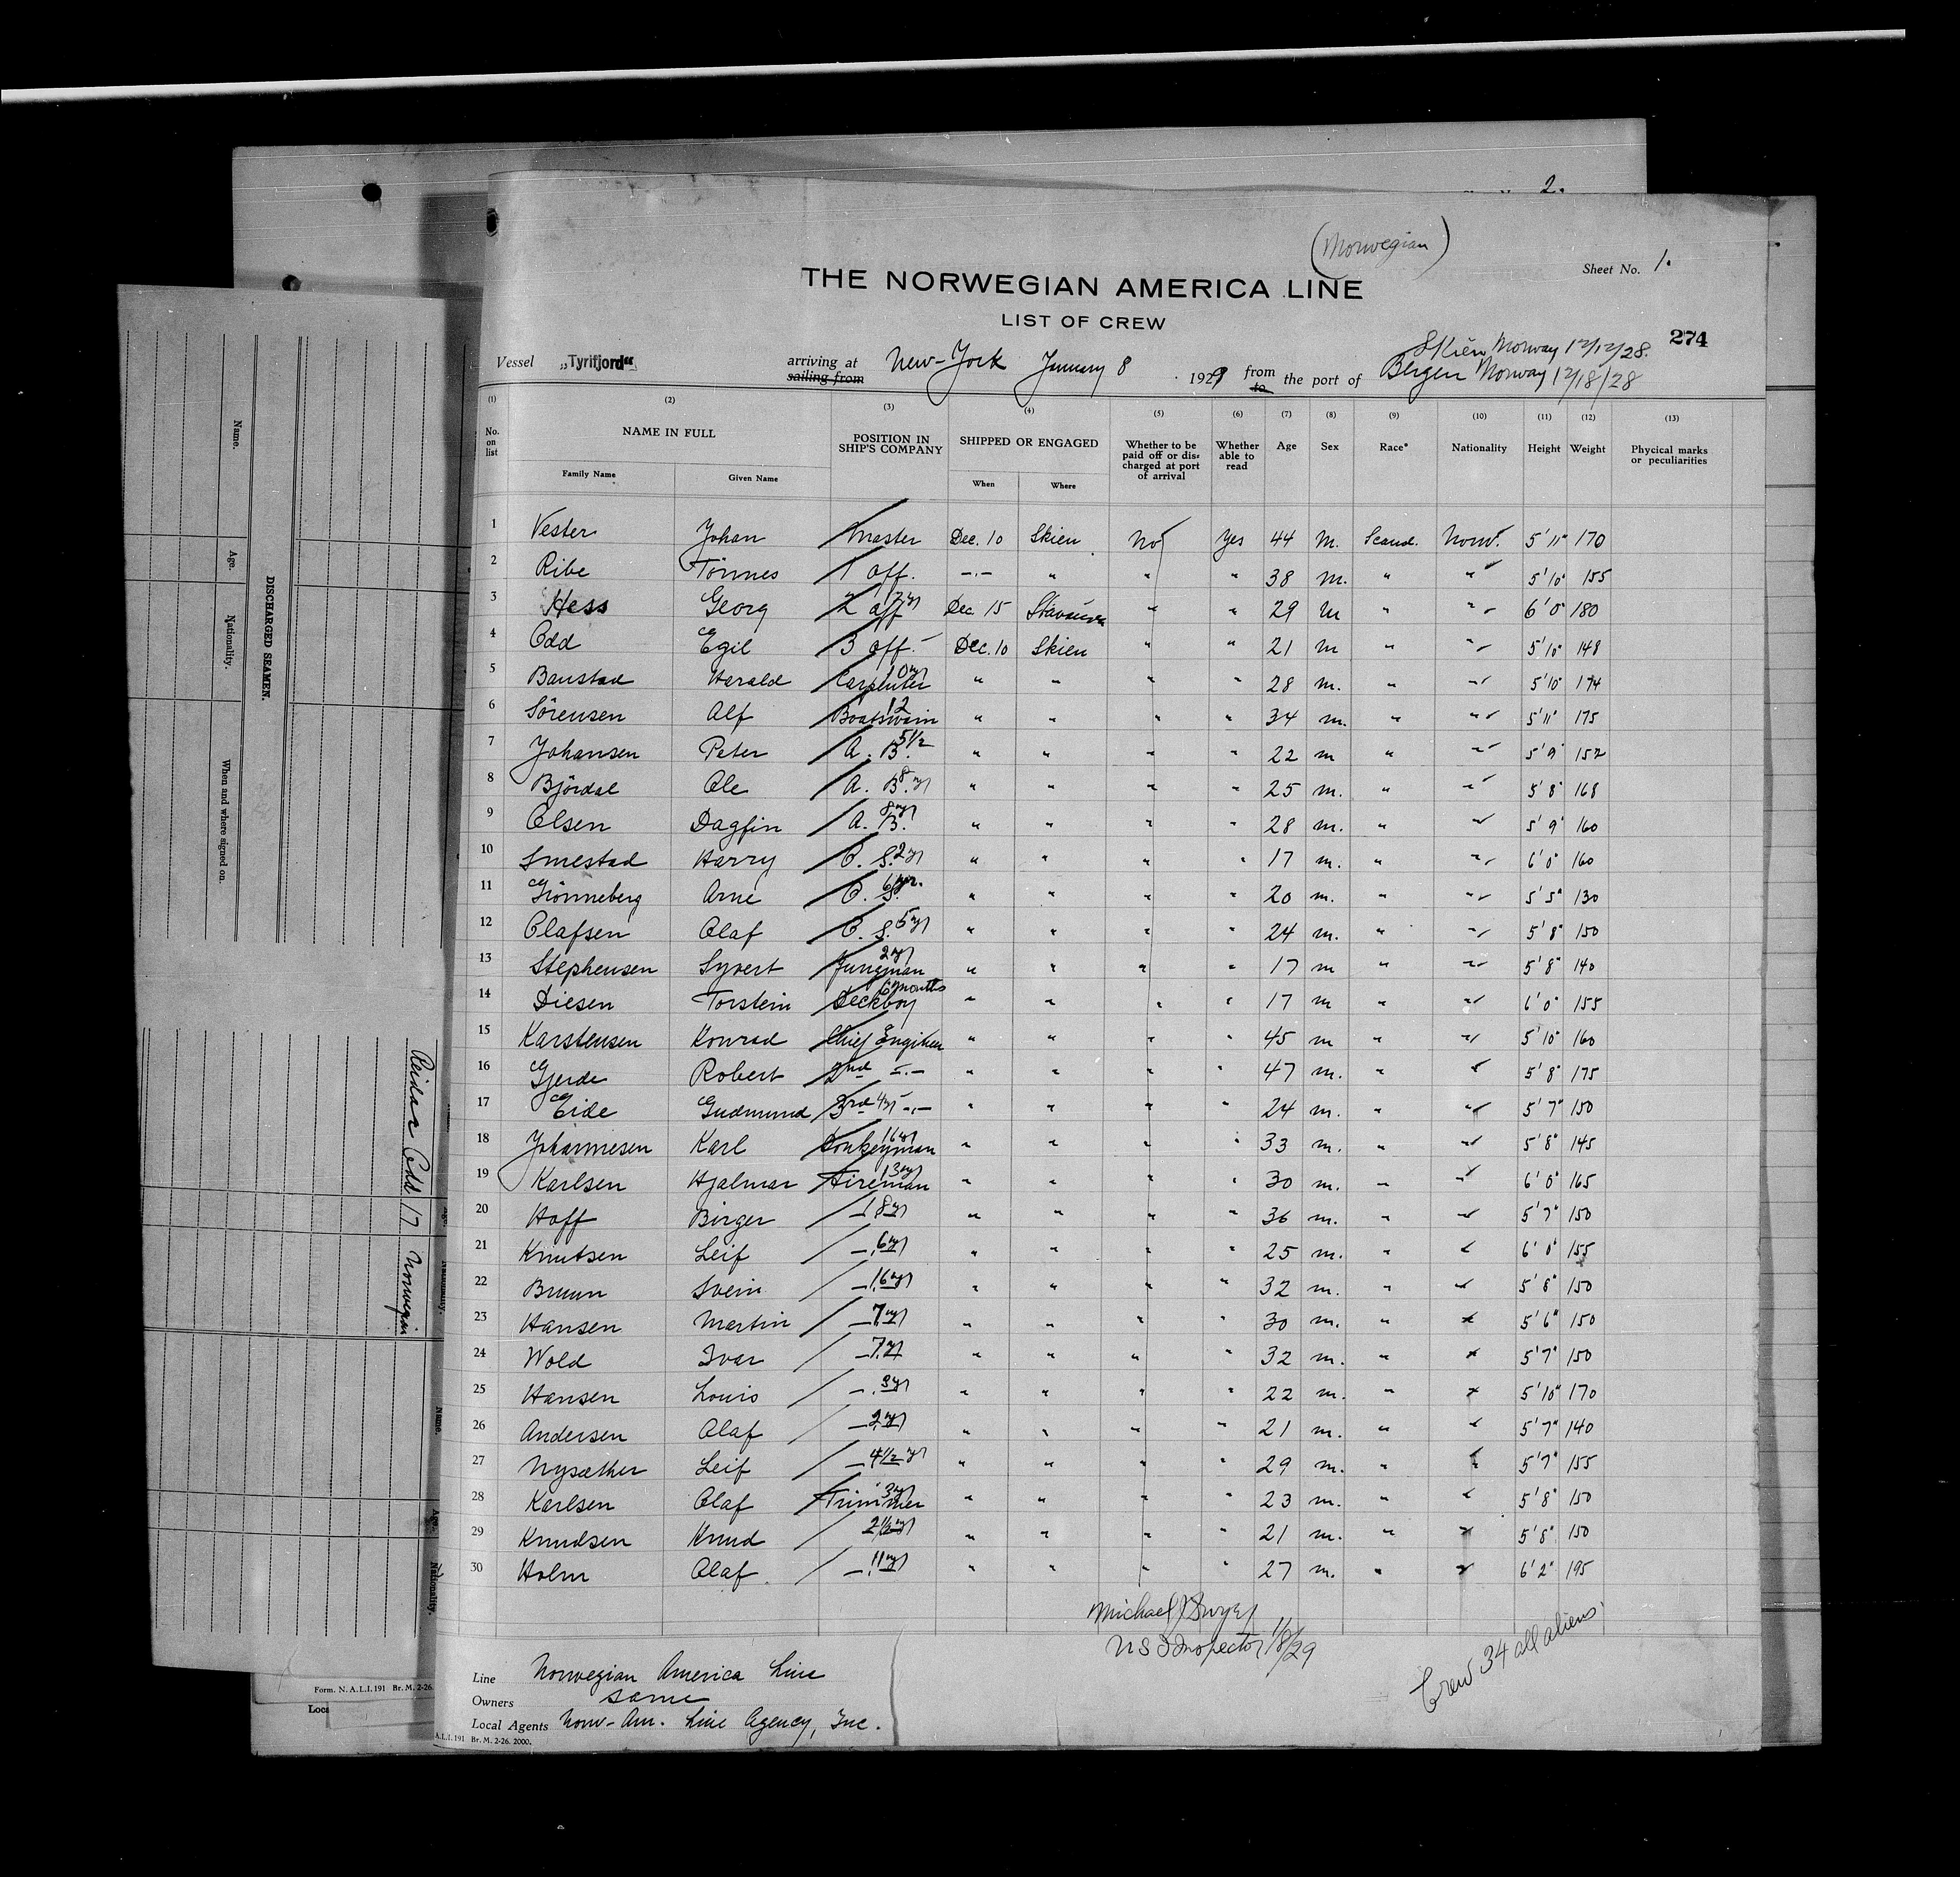 2.
(Norwegian)
Sheet No. 1.
THE NORWEGIAN AMERICA LINE
LIST OF CREW
274
Skien Norway 12/12/28.
Vessel „Tyrifjord“ arriving at sailing from New-York January 8 1929 from to the port of Bergen Norway 12/18/28
(1) (2) (3) (4) (5) (6) (7) (8) (9) (10) (11) (12) (13)
No. on list NAME IN FULL Family Name Given Name POSITION IN SHIP'S COMPANY SHIPPED OR ENGAGED When Where Whether to be paid off or discharged at port of arrival Whether able to read Age Sex Race* Nationality Height Weight Phycical marks or peculiarities
1 Vester Johan Master Dec. 10 Skien No Yes 44 M. Scand. Norw. 5'11" 170
2 Ribe Tönnes 1 off. -.- " " " 38 m. " " 5'10" 155
3 Hess Georg 2 off 12 y Dec 15 Stavanger " " 29 m " " 6'0" 180
4 Odd Egil 3 off. Dec. 10 Skien " " 21 m " " 5'10" 148
5 Banstad Harald Carpenter 10 y " " " " 28 m. " " 5'10" 174
6 Sörensen Alf Boatswain 12 " " " " 34 m. " " 5'11" 175
7 Johansen Peter A. B. 5 1/2 " " " " 22 m " " 5'9" 152
8 Björdal Ole A. B. 8 y " " " " 25 m. " " 5'8" 168
9 Olsen Dagfin A. B. 8 y " " " " 28 m. " " 5'9" 160
10 Smestad Harry O. S. 2 y " " " " 17 m. " " 6'0" 160
11 Grönneberg Arne O. S. 6 yr. " " " " 20 m. " " 5'5" 130
12 Olafsen Olaf O. S. 5 y " " " " 24 m. " " 5'8" 150
13 Stephensen Syvert Jungman 2 y " " " " 17 m " " 5'8" 140
14 Diesen Torstein Deckboy 6 months " " " " 17 m " " 6'0" 155
15 Karstensen Konrad Chief Engineer " " " " 45 m " " 5'10" 160
16 Gjerde Robert 2nd -.- " " " " 47 m. " " 5'8" 175
17 Eide Gudmund 3rd 4 y -.- " " " " 24 m. " " 5'7" 150
18 Johannesen Karl Donkeyman 16 y " " " " 33 m. " " 5'8" 145
19 Karlsen Hjalmar Fireman 13 y " " " " 30 m. " " 6'0" 165
20 Hoff Birger 18 y " " " " 36 m. " " 5'7" 150
21 Knutsen Leif 6 y " " " " 25 m. " " 6'0" 155
22 Bruun Svein 16 y " " " " 32 m. " " 5'8" 150
23 Hansen Martin 7 y " " " " 30 m. " " 5'6" 150
24 Wold Ivar 7 y " " " " 32 m. " " 5'7" 150
25 Hansen Louis 3 y " " " " 22 m. " " 5'10" 170
26 Andersen Olaf 2 y " " " " 21 m. " " 5'7" 140
27 Nysæther Leif 4 1/2 y " " " " 29 m. " " 5'7" 155
28 Karlsen Olaf Trimmer 3 y " " " " 23 m. " " 5'8" 150
29 Knudsen Knud 2 1/2 y " " " " 21 m. " " 5'8" 150
30 Holm Olaf 11 y " " " " 27 m. " " 6'2" 195
Michael J
U S Inspector 1/8/29
Crew 34 all aliens.
Line Norwegian America Line
Owners same
Local Agents Norw-Am. Line Agency, Inc.
A.L.I. 191 Br. M. 2-26. 2000.
Form. N. A. L. I. 191 Br. M. 2-26.
Loca
DISCHARGED SEAMEN.
Name. Age. Nationality. When and where signed on.
Reidar Odd 17 Norwegian
Name. Age. Nationality.